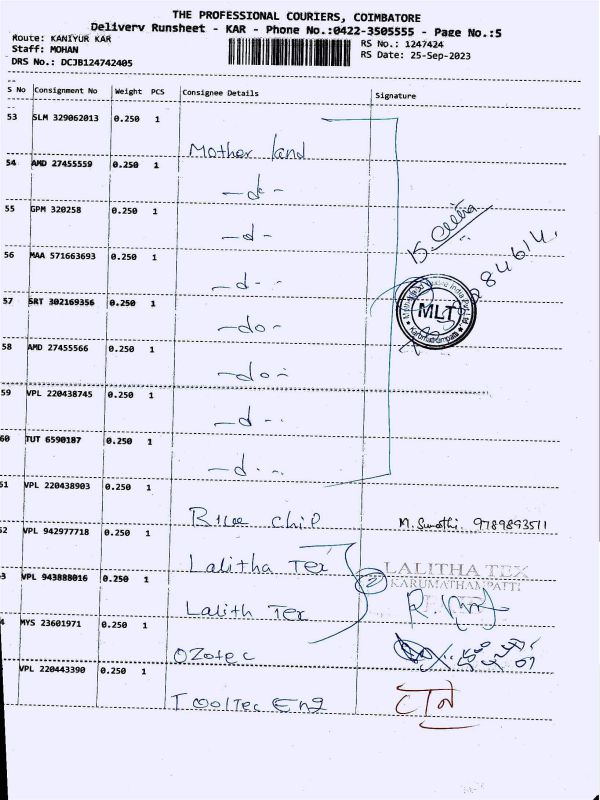 THE PROFESSIONAL COURIERS, COIMBATORE
Delivery Runsheet - KAR - Phone No.:0422-3505555 - Page No.:5
Route: KANIYUR KAR
RS No.: 1247424
Staff: MOHAN
RS Date: 25-Sep-2023
DRS No.: DCJB124742405
S No Consignment No Weight PCS Consignee Details Signature
53 SLM 329062013 0.250 1
Mother land
54 AMD 27455559 0.250 1
-d-
55 GPM 320258 0.250 1
-d-
15
56 MAA 571663693 0.250 1
-d--
84614
57 SRT 302169356 0.250 1
-do-
MLT
58 AMD 27455566 0.250 1
-do-
59 VPL 220438745 0.250 1
-d--
60 TUT 6590187 0.250 1
-d--
61 VPL 220438903 0.250 1
Blue chip M. Swathi 9789893511
62 VPL 942977718 0.250 1
Lalitha Tex
2
LALITHA TEX
KARUMATHAMPATTI
63 VPL 943888016 0.250 1
Lalith Tex
4 MYS 23601971 0.250 1
OZotec
VPL 220443390 0.250 1
ToolTec Eng